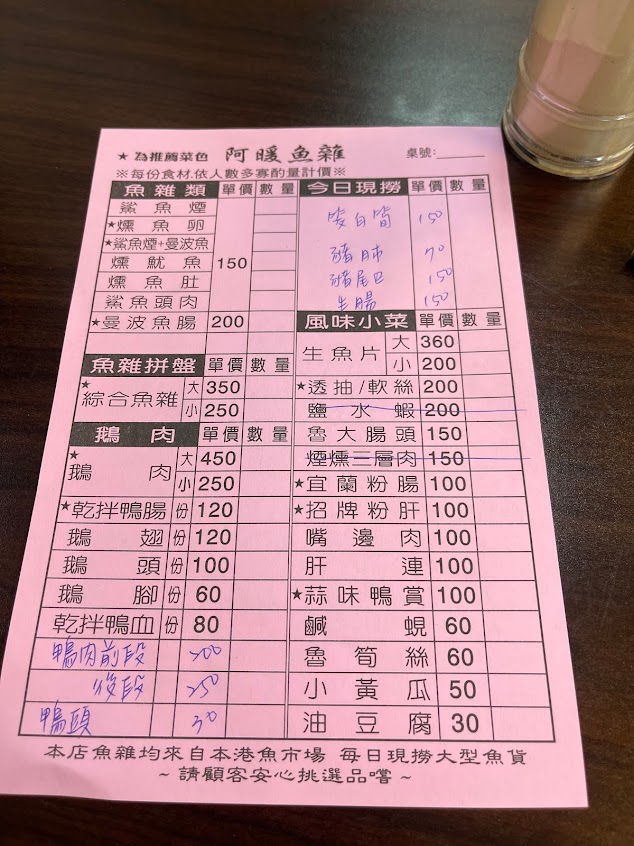 ★為推薦菜色 阿暖魚雜 桌號:
※每份食材.依人數多寡酌量計價※
魚雜類 單價 數量
鯊魚煙
★燻魚卵
★鯊魚煙+曼波魚
燻魷魚 150
燻魚肚
鯊魚頭肉
★曼波魚腸 200
魚雜拼盤 單價 數量
★綜合魚雜 大 350
小 250
鵝肉 單價 數量
★鵝肉 大 450
小 250
★乾拌鴨腸 份 120
鵝翅 份 120
鵝頭 份 100
鵝腳 份 60
乾拌鴨血 份 80
鴨肉前段 200
後段 250
鴨頭 30
今日現撈 單價 數量
茭白筍 150
豬肺 70
豬尾巴 150
生腸 150
風味小菜 單價 數量
生魚片 大 360
小 200
★透抽/軟絲 200
鹽水蝦 200
魯大腸頭 150
煙燻三層肉 150
★宜蘭粉腸 100
★招牌粉肝 100
嘴邊肉 100
肝連 100
★蒜味鴨賞 100
鹹蜆 60
魯筍絲 60
小黃瓜 50
油豆腐 30
本店魚雜均來自本港魚市場 每日現撈大型魚貨
~請顧客安心挑選品嚐~